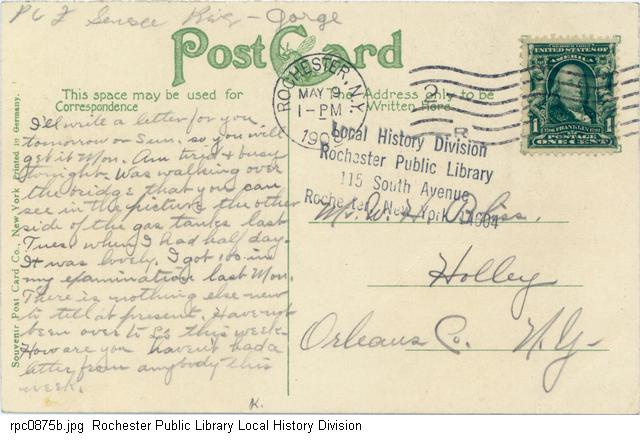 PCF Genesee Riv - Gorge
Post Card
This space may be used for
Correspondence
The Address only to be
Written Here
ROCHESTER, N.Y.
MAY 9
1-PM
1909
UNITED STATES OF
AMERICA
1706 FRANKLIN 1790
POSTAGE
1 ONE CENT 1
Local History Division
Rochester Public Library
115 South Avenue
Rochester, New York 14604
I'll write a letter for you
tomorrow or Sun. so you will
get it Mon. Am tired & busy
tonight. Was walking over
the bridge that you can
see in the picture the other
side of the gas tanks last
Tues when I had half day.
It was lovely. I got 100 in
my examination last Mon.
There is nothing else new
to tell at present. Have not
been over to Ls this week.
How are you haven't had a
letter from anybody this
week.
K.
Mr. W. H. Bliss.
Holley
Orleans Co. N.Y.
Souvenir Post Card Co., New York Printed in Germany.
rpc0875b.jpg Rochester Public Library Local History Division